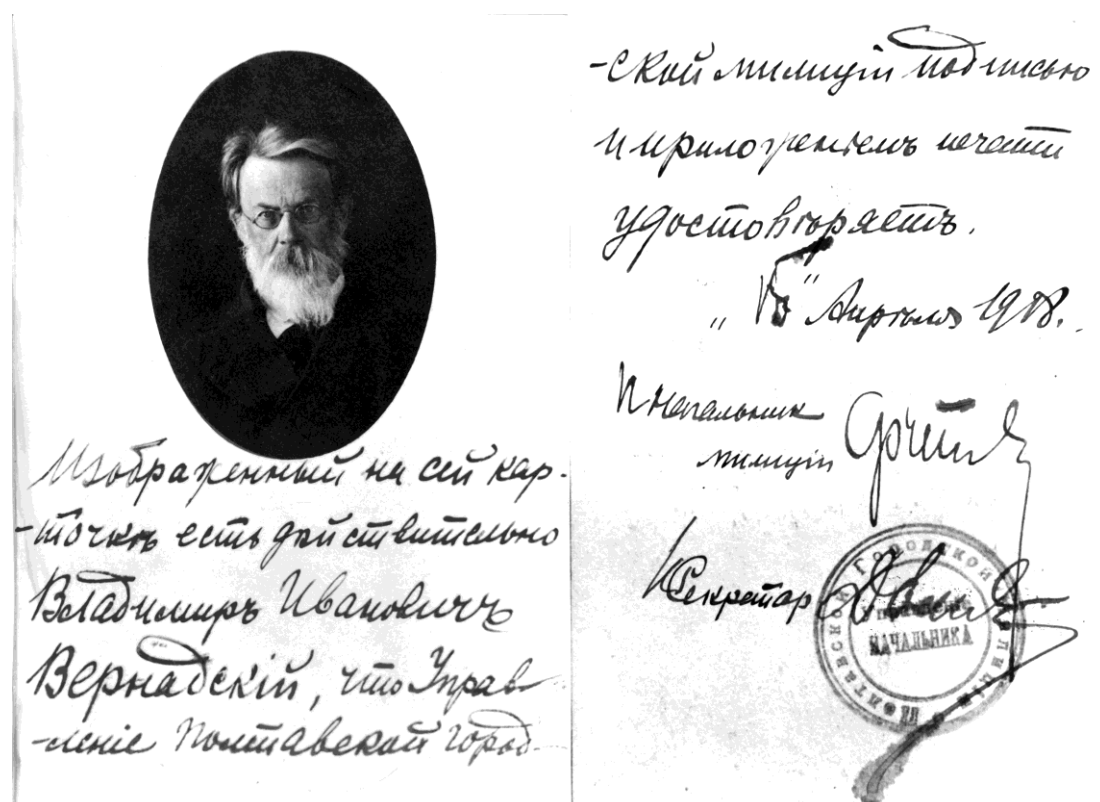 Изображенный на сей кар-
-точкѣ есть дѣйствительно
Владимиръ Ивановичъ
Вернадскій, что Управ-
-леніе Полтавской город-
-ской милиціи подписью
и приложеніемъ печати
удостовѣряетъ.
Апрѣля 1918.
Начальник
милиціи
Секретар
Полтавской Городской Милиціи
НАЧАЛЬНИКА